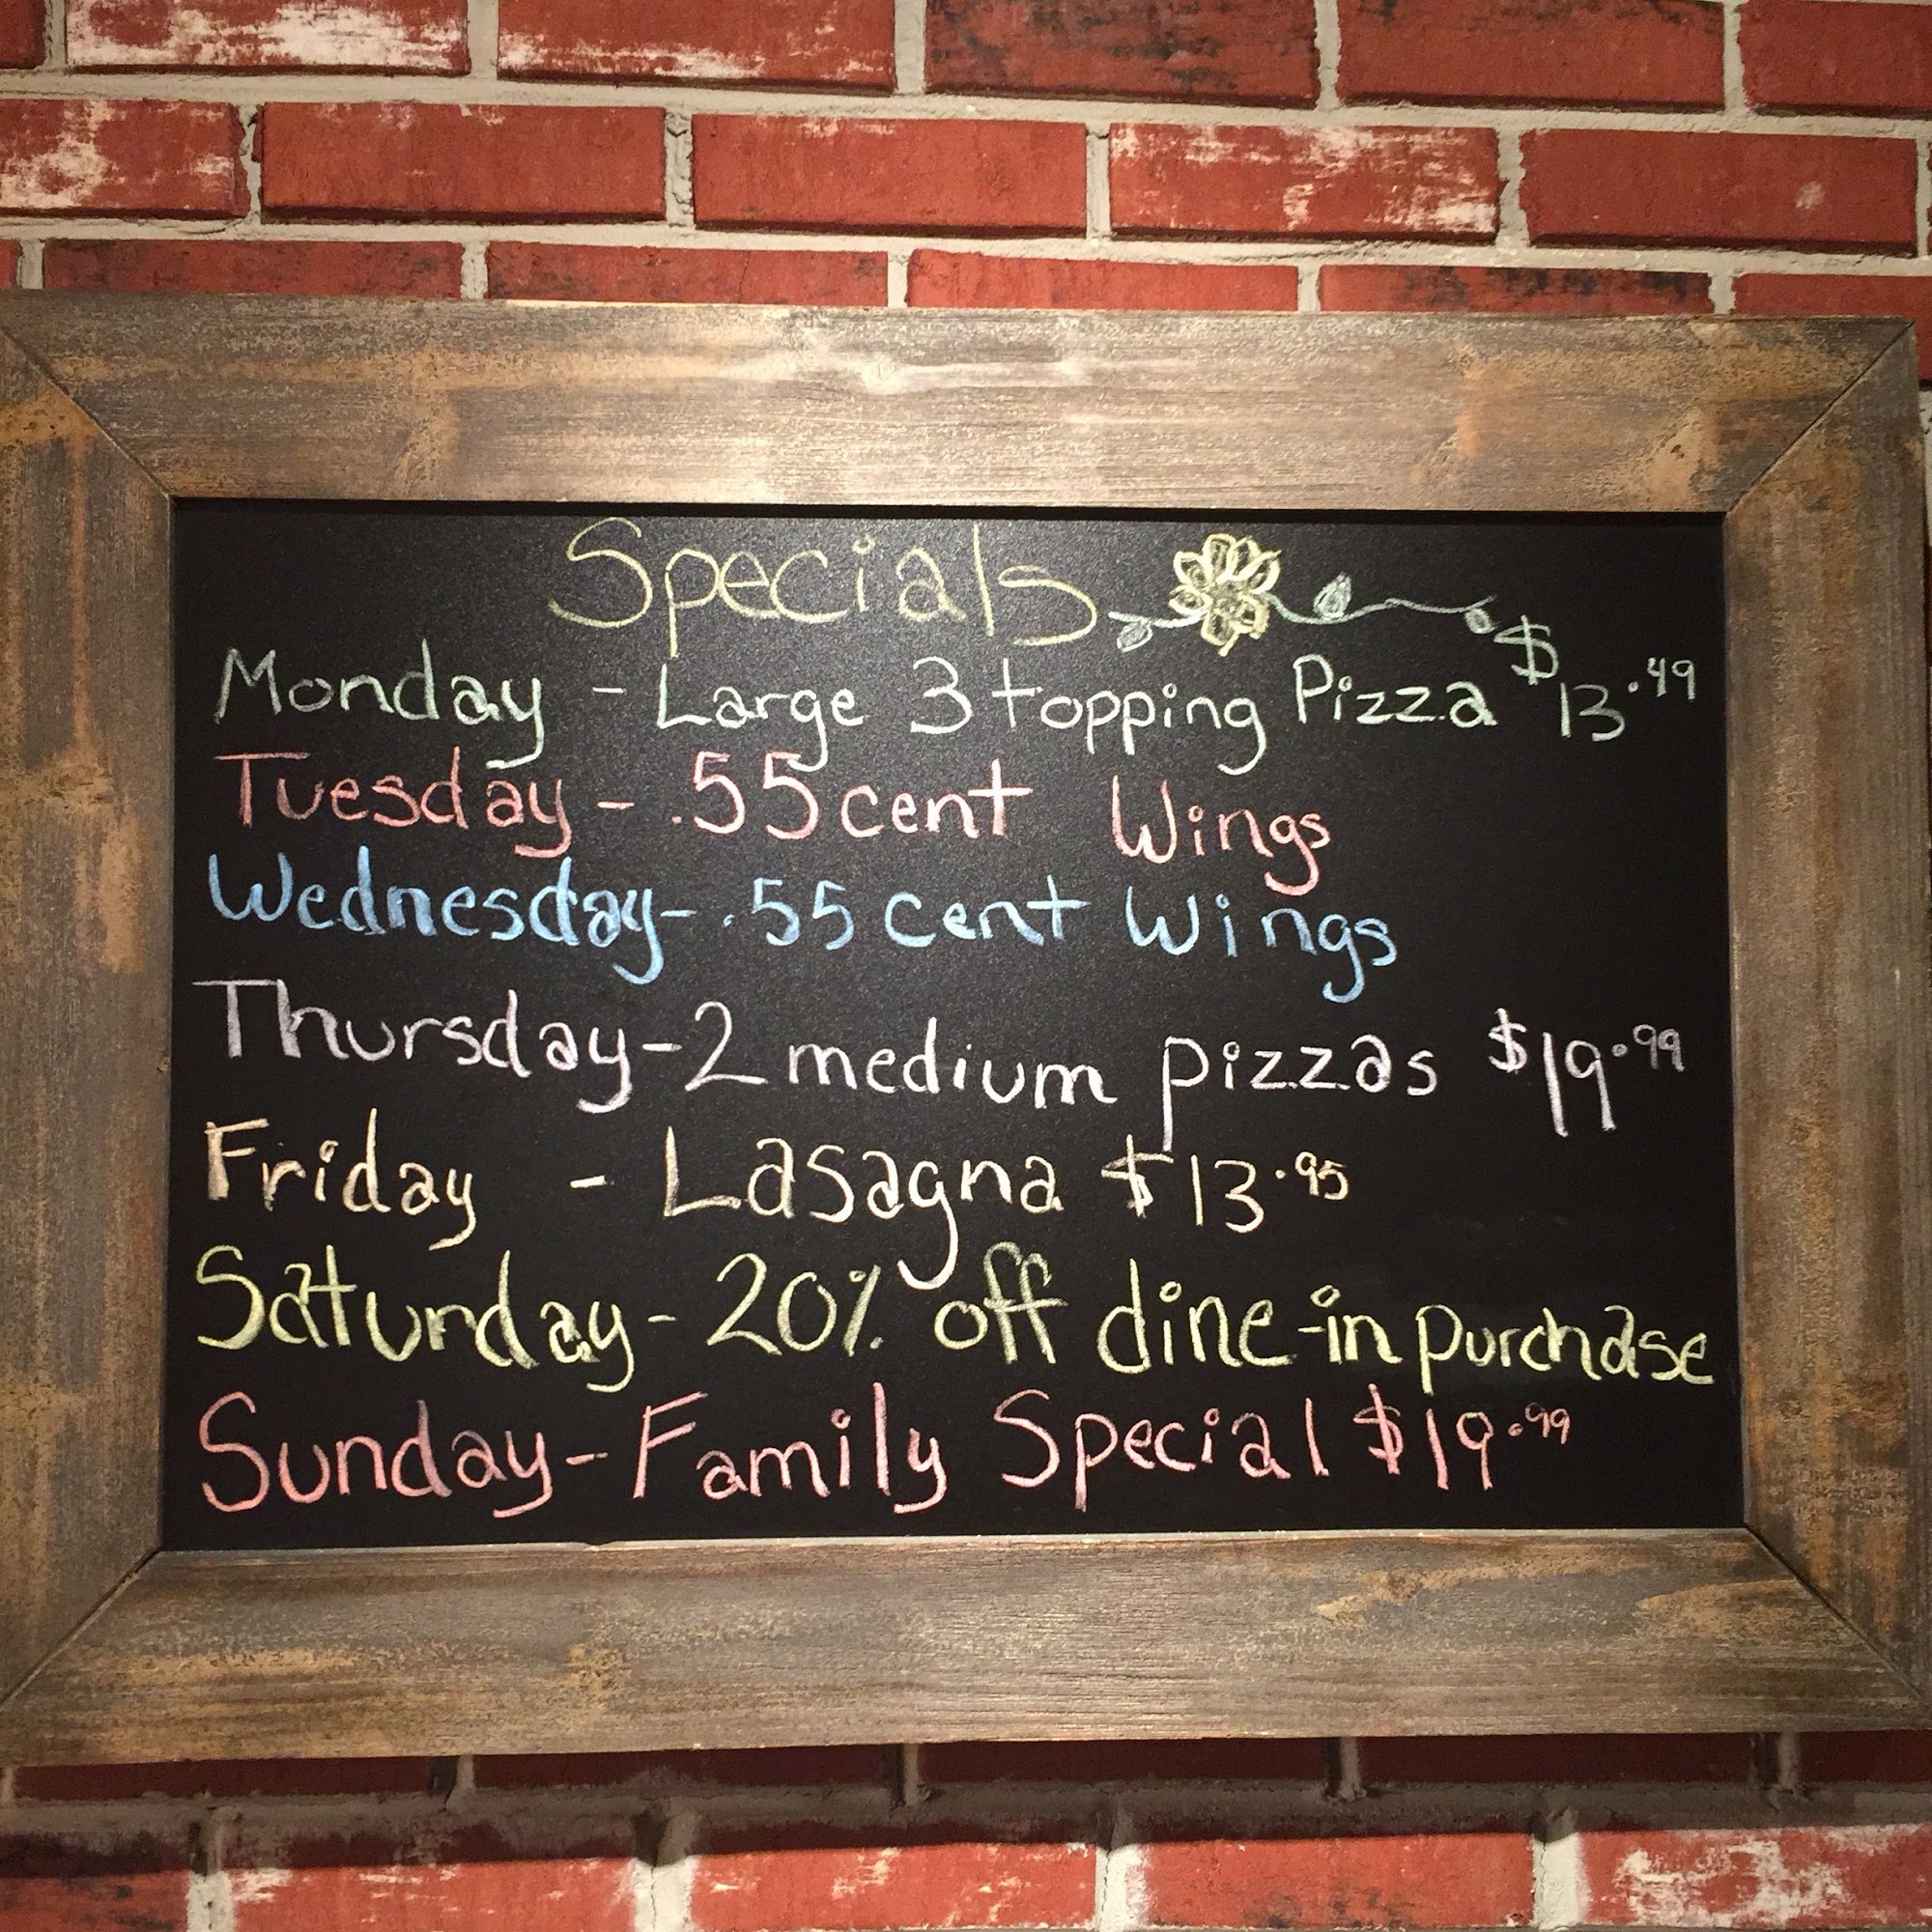 Specials
Monday - Large 3 topping Pizza $13.49
Tuesday - .55 cent Wings
Wednesday - .55 cent Wings
Thursday - 2 medium pizzas $19.99
Friday - Lasagna $13.95
Saturday - 20% off dine-in purchase
Sunday - Family Special $19.99